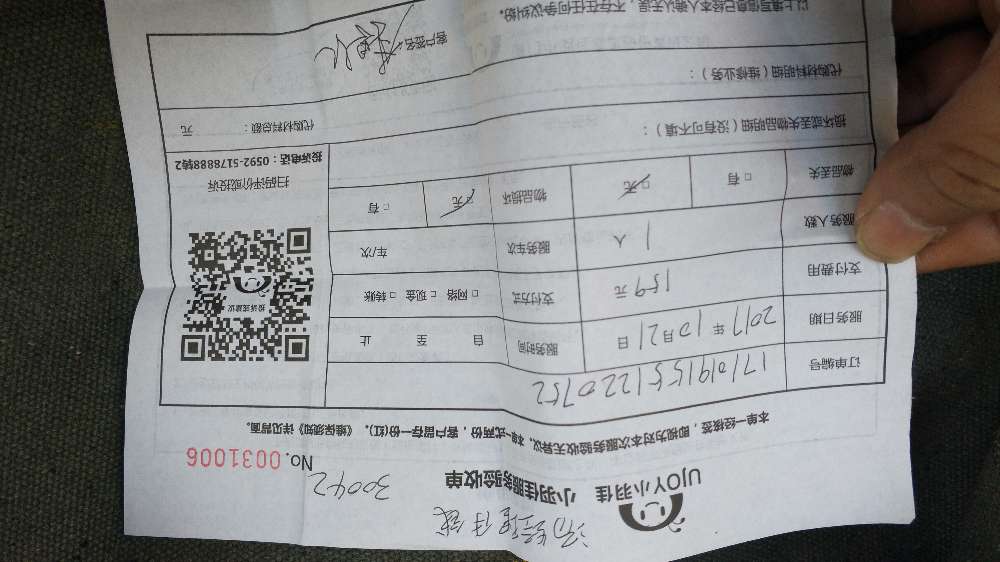 UJOYY小羽佳 小羽佳服务验收单 30042 No. 0031006
本单一经核签，即视为对本次服务验收无异议。本单一式两份，客户留存一份(红)。《维保须知》详见背面。
订单编号 1710191551220752
服务日期 2017年10月21日 服务时间 自 至 止
支付费用 159元 支付方式 □ 网络 □ 现金 □ 转账
服务人数 1人 服务车次 车/次
物品丢失 □ 有 □ 无 物品损坏 □ 无 □ 有
投诉或建议
扫码评价或投诉
投诉电话：0592-5178888转2
损坏或丢失物品明细（没有可不填）：
代购材料明细（维修业务）：
代购材料总额： 元
客户签名：
以上填写信息已经本人确认无误，不存在任何争议纠纷。